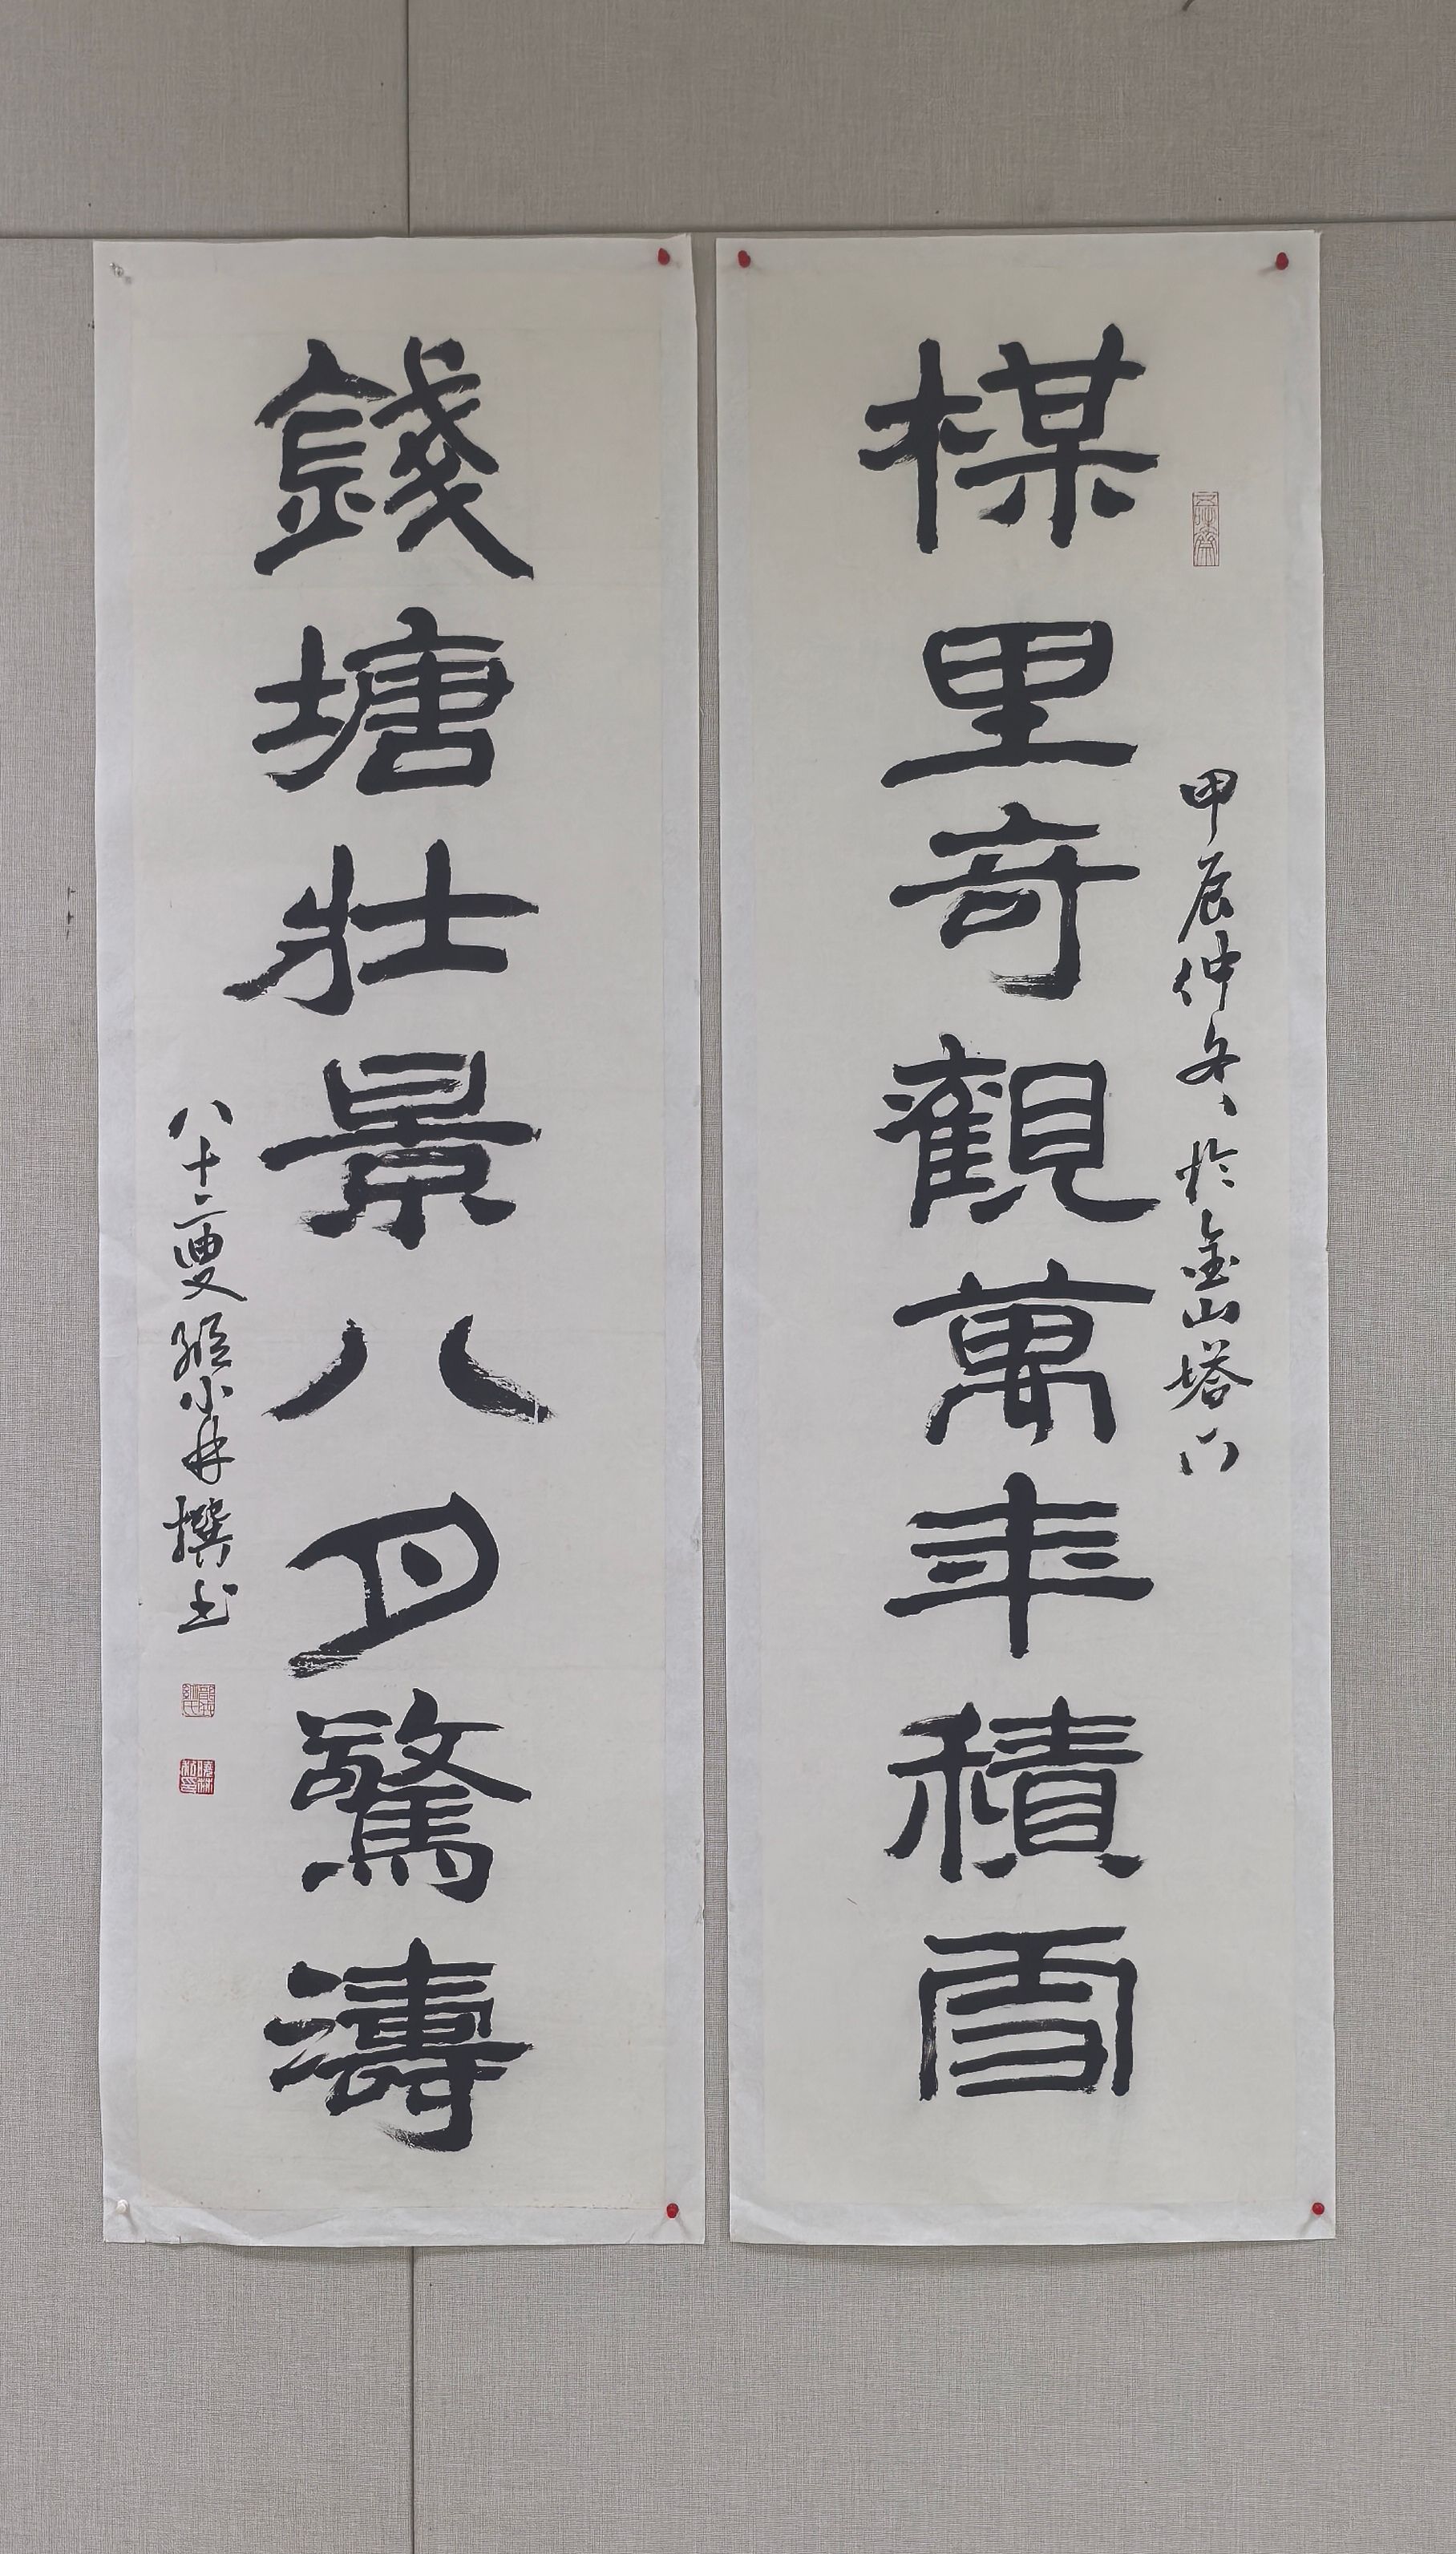 楳里奇觀萬年積雪
甲辰仲冬於金山塔下
錢塘壯景八月驚濤
八十二叟 小 撰书